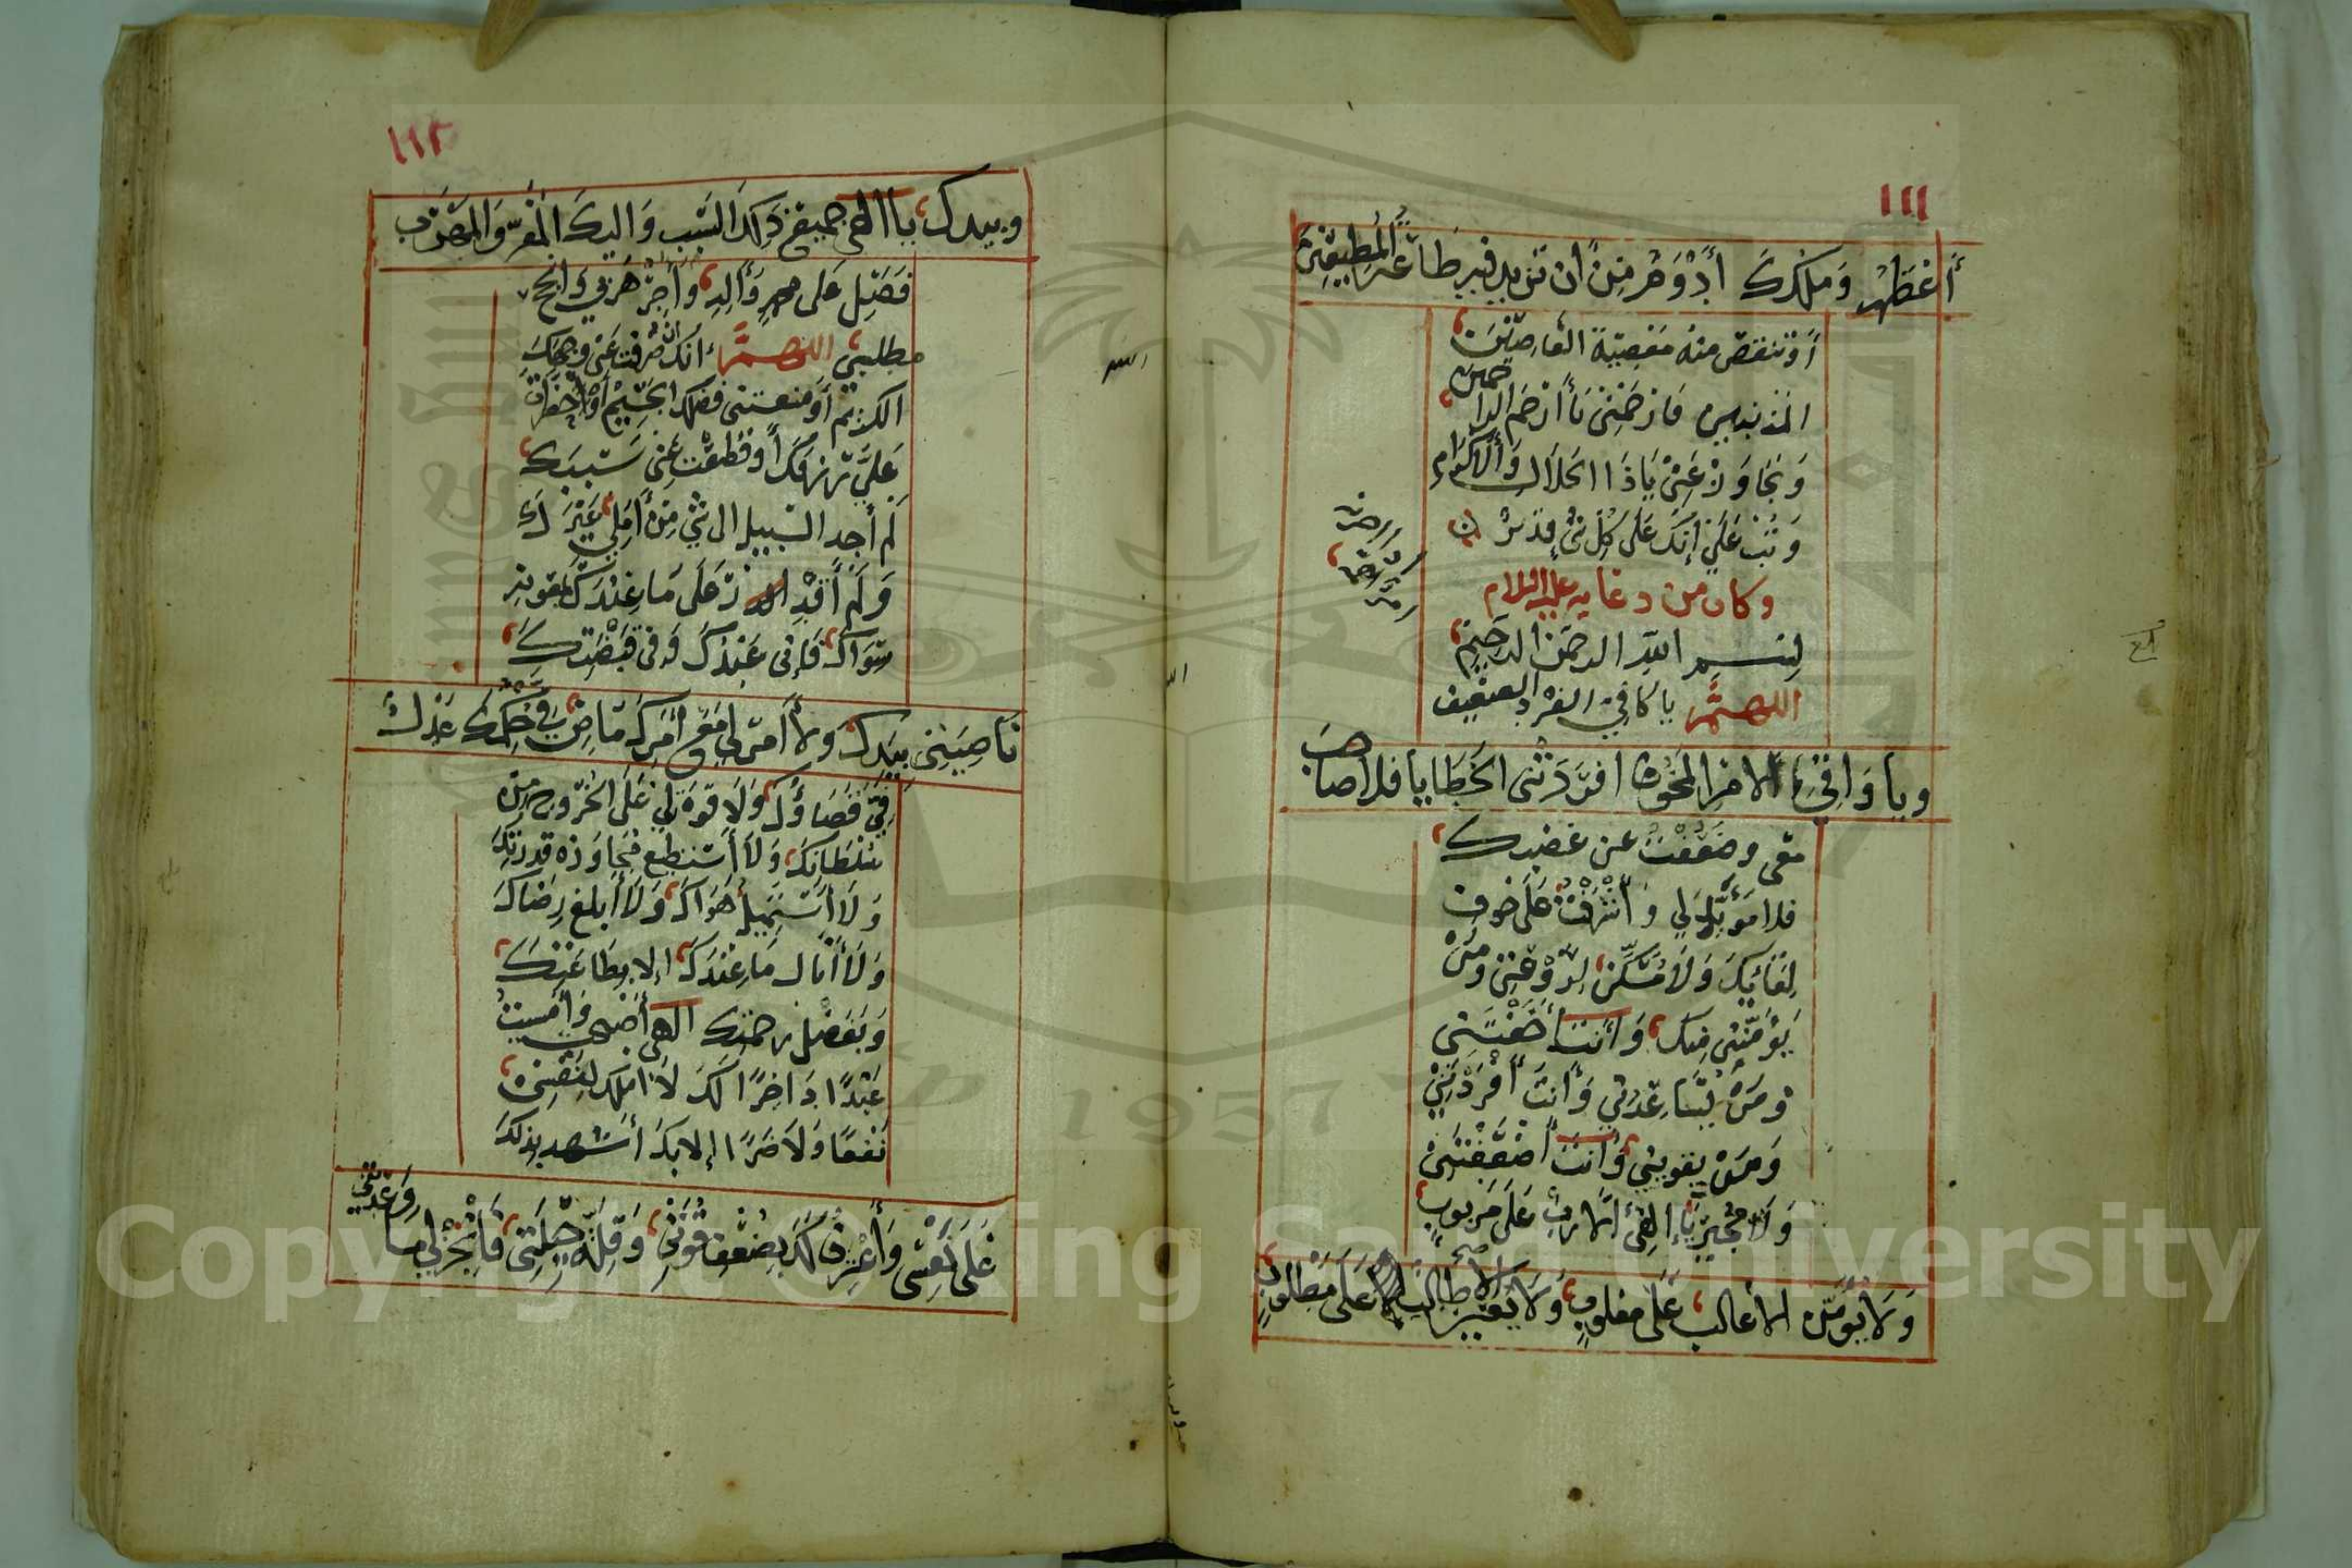 ١١١
أَعْظَمُ وَمُلْكُكَ أَدْوَمُ مِنْ أَنْ تَزِيدَ فِيهِ طَاعَةُ الْمُطِيعِيْنَ
أَوْ تنقصَ منهُ مَعْصِيَةُ العَاصِيْنَ
المُذنبين فَارْحَمْنِي يَا أَرْحَمَ الراحمين
وَتَجَاوَزْ عَنِّيْ يَا ذَا الجَلَالِ وَالْاكْرَامِ
وَتُبْ عَلَيَّ إِنَّكَ عَلَى كُلِّ شَيْءٍ قَدِيْرٌ
وكان من دعايه عليه السلام
بِسْمِ اللّهِ الرحمن الرحِيْمِ
اللهمَّ يا كَافِيَ الفرْدِ الضعِيف
وياوَاقِيَ الامْرِ المَخُوفِ افرَدَتْني الخَطَايا فلا صاحبَ
معي وضَعُفْتُ عن غضبِكَ
فلا مُؤَيِّدَ لِي وَأَشْرَفْتُ عَلَى خوفِ
لِقَائِكَ وَلَا مُسَكِّنَ لِرَوْعَتِي وَمَنْ
يُؤمنُنِي مِنكَ وَأَنْتَ أَخَفْتَنِي
وَمَنْ يُسَاعِدُنِي وَأَنْتَ أَفْرَدْتَنِيْ
وَمَنْ يقوّيني وَأَنْتَ أَضْعَفْتَنِيْ
وَلَا مُجِيرَ يَا إِلهِي إِلَّا رَبٌّ عَلَى مَرْبوبٍ
وَلَا يُؤَمِّنُ الا غالبٌ عَلَى مغلوبٍ وَلَا يُعِينُ إلا طالبٌ عَلَى مَطْلُوبٍ
١١٢
وبيدك يا الهي جميعُ ذَلِكَ السَبَبِ وَاليكَ الْمَفَرُّ وَالْمَهْرَبُ
فَصَلِّ عَلَى محمدٍ وَآلِهِ وَأَجِرْ هَرَبِي وَانْجِحْ
مطلبي اللهمَّ انكَ ان صرفت عَنِّي وَجْهَكَ
الكريمَ أَوْ منعتني فضلك الجَسِيْمَ أَوْ حَظَرْتَ
عَلَيَّ رِزقَكَ أَوْ قَطَعْتَ عَنِّي سَبَبَكَ
لَمْ أَجِدِ السَّبِيلَ الى شيْءٍ مِنْ أَمَلِي غَيْرَكَ
وَلَمْ أَقْدِرْ عَلَى مَا عِنْدَكَ بمَعُونةِ
سِوَاكَ فَإِنِّي عَبْدُكَ وَفِي قَبْضَتِكَ
نَاصِيَتِي بِيَدِكَ ولَا أَمْرَ لِي مَعَ أَمْرِكَ مَاضٍ فِيَّ حُكْمُكَ عَدْلٌ
فِيَّ قَضَاؤُكَ وَلَا قوَّةَ لِي عَلَى الخُرُوجِ مِنْ
سُلْطَانِكَ وَلَا أَسْتَطِيعُ مُجَاوَزَةَ قُدْرَتِكَ
وَلَا أَسْتَمِيلُ هَوَاكَ وَلَا أَبلغُ رِضَاكَ
وَلَا أَنَالُ مَا عِنْدَكَ إلا بِطَاعَتِكَ
وَبِفَضْلِ رحمتِكَ الهي أَصْبَحْتُ وَأَمْسَيْتُ
عَبْدًا دَاخِرًا لَكَ لَا أَمْلِكُ لِنَفْسِي
نَفْعًا وَلَا ضَرًّا إِلا بِكَ أَشْهَدُ بِذَلِكَ
عَلَى نَفْسِي وَأَعْتَرِفُ لَكَ بِضَعْفِ قُوَّتِي وَقِلَّةِ حِيْلَتِي فَأَنْجِزْ لِي مَا وَعَدْتَنِي
Copyright © King Saud University
1957